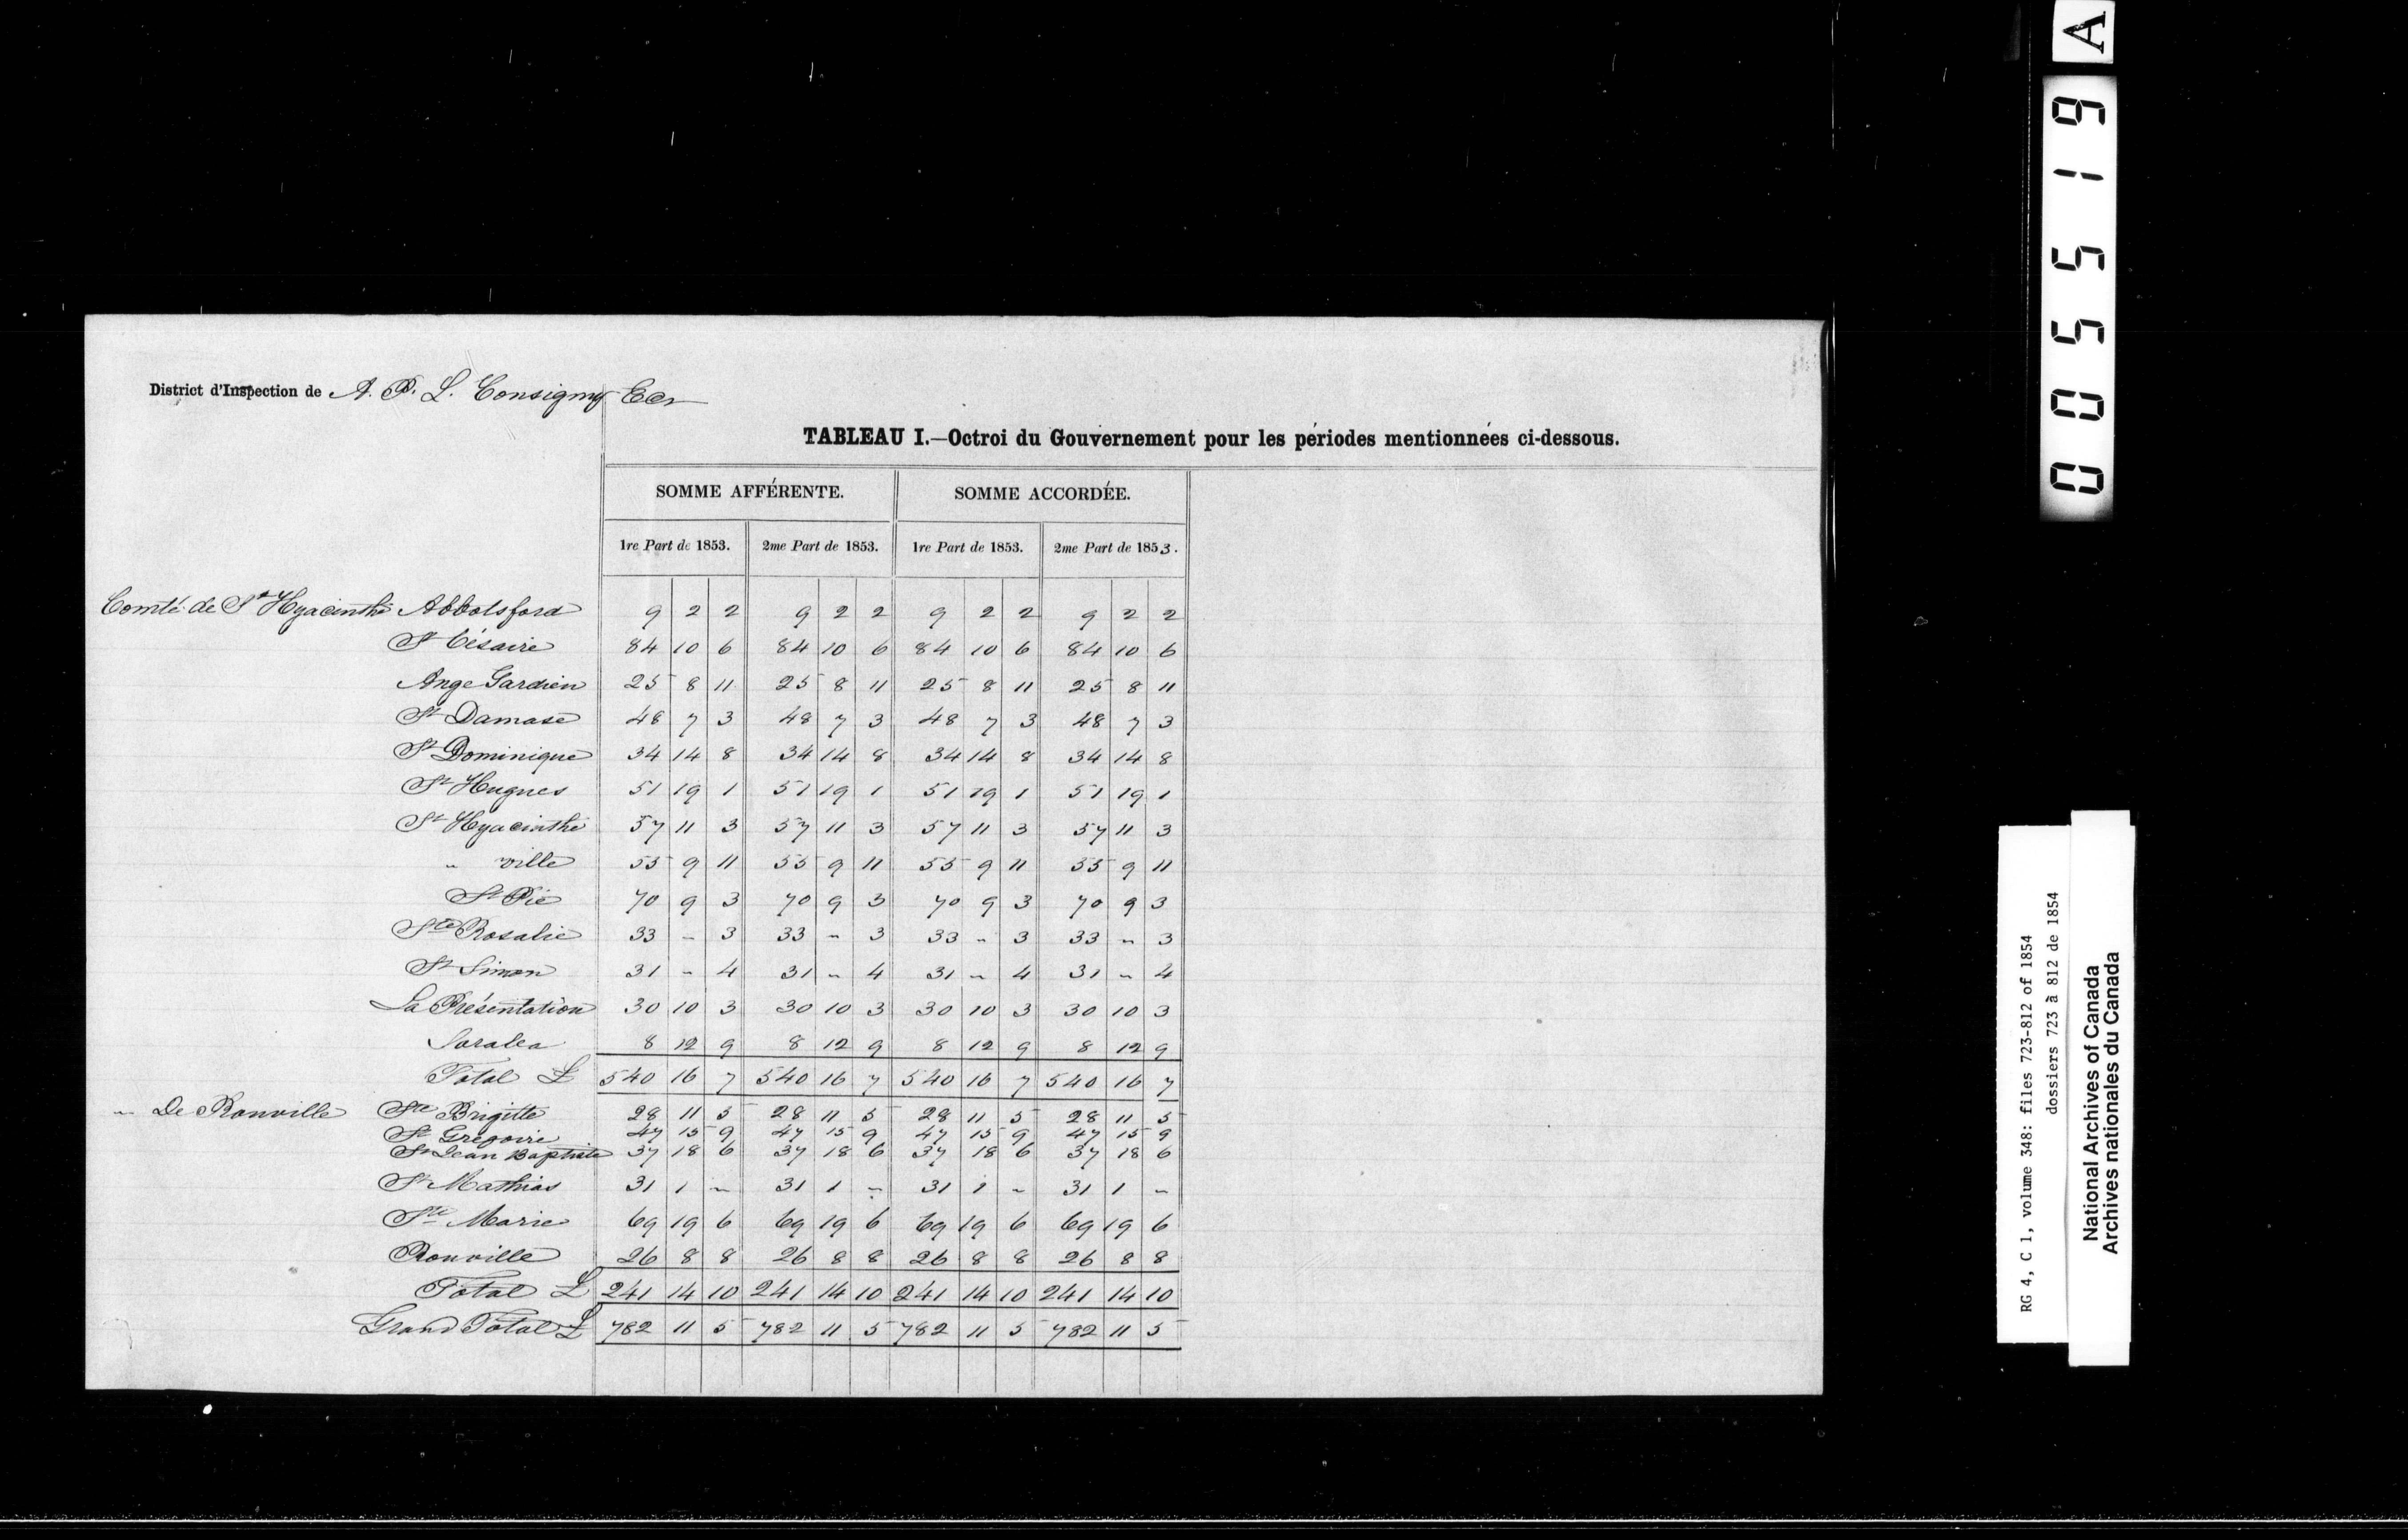 District d'Inspection de A. P. L. Consigny Ecr
TABLEAU I.—Octroi du Gouvernement pour les périodes mentionnées ci-dessous.
SOMME AFFÉRENTE. SOMME ACCORDÉE.
1re Part de 1853. 2me Part de 1853. 1re Part de 1853. 2me Part de 1853.
Comté de St Hyacinthe Abbotsford 9 2 2 9 2 2 9 2 2 9 2 2
St Césaire 84 10 6 84 10 6 84 10 6 84 10 6
Ange Gardien 25 8 11 25 8 11 25 8 11 25 8 11
St Damase 48 7 3 48 7 3 48 7 3 48 7 3
St Dominique 34 14 8 34 14 8 34 14 8 34 14 8
St Hugues 51 19 1 51 19 1 51 19 1 51 19 1
St Hyacinthe 57 11 3 57 11 3 57 11 3 57 11 3
" ville 55 9 11 55 9 11 55 9 11 55 9 11
St Pie 70 9 3 70 9 3 70 9 3 70 9 3
Ste Rosalie 33 " 3 33 " 3 33 " 3 33 " 3
St Simon 31 " 4 31 " 4 31 " 4 31 " 4
La Présentation 30 10 3 30 10 3 30 10 3 30 10 3
8 12 9 8 12 9 8 12 9 8 12 9
Total £ 540 16 7 540 16 7 540 16 7 540 16 7
" De Rouville Ste Brigitte 28 11 5 28 11 5 28 11 5 28 11 5
St Grégoire 47 15 9 47 15 9 47 15 9 47 15 9
St Jean Baptiste 37 18 6 37 18 6 37 18 6 37 18 6
St Mathias 31 1 " 31 1 " 31 1 " 31 1 "
Ste Marie 69 19 6 69 19 6 69 19 6 69 19 6
Rouville 26 8 8 26 8 8 26 8 8 26 8 8
Total £ 241 14 10 241 14 10 241 14 10 241 14 10
Grand Total £ 782 11 5 782 11 5 782 11 5 782 11 5
005519 A
RG 4, C 1, volume 348: files 723-812 of 1854
dossiers 723 à 812 de 1854
National Archives of Canada
Archives nationales du Canada